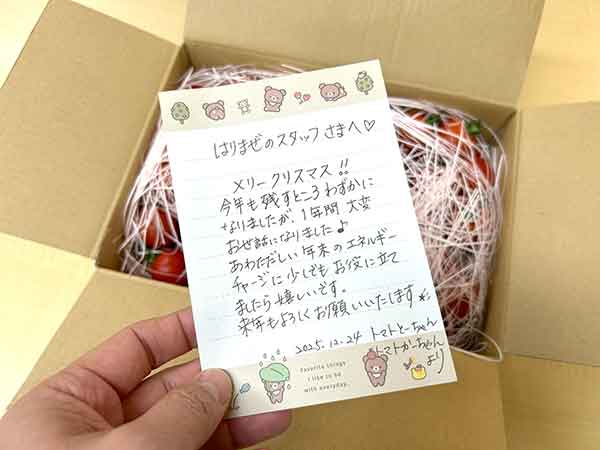 はりまぜのスタッフさまへ♡
メリークリスマス!!
今年も残すところわずかに
なりましたが、1年間大変
お世話になりました♪
あわただしい年末のエネルギー
チャージに少しでもお役に立て
ましたら嬉しいです。
来年もよろしくお願いいたします
2025.12.24 トマトとーちゃん
トマトかーちゃん
より
Favorite things
I like to be
with everyday.